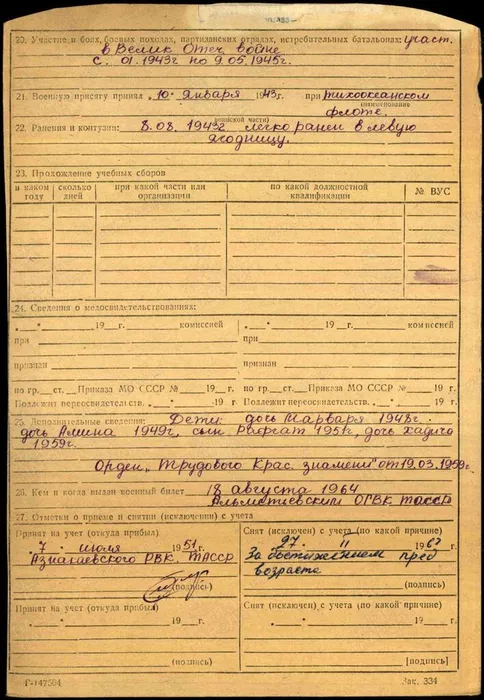 20. Участие в боях, боевых походах, партизанских отрядах, истребительных батальонах: участ.
в Велик Отеч войне
с. 01.1943г по 9.05.1945г.
21. Военную присягу принял „10" января 1943г. при тихоокеанском
(наименование
флоте.
воинской части)
22. Ранения и контузии: 8.08.1943г легко ранен в левую
ягодницу.
23. Прохождение учебных сборов
в каком году | сколько дней | при какой части или организации | по какой должностной квалификации | № ВУС
24. Сведения о медосвидетельствованиях:
„ " 19 г. комиссией „ " 19 г. комиссией
при при
признан признан
по гр. ст. Приказа МО СССР № 19 г. по гр. ст. Приказа МО СССР № 19 г.
Подлежит переосвидетельств. „ " 19 г Подлежит переосвидетельств. „ " 19 г.
25. Дополнительные сведения: Дети: дочь Марваря 1948г.
дочь Амина 1949г, сын Рафгат 1951г, дочь Хадича
1959г.
Орден „Трудового Крас. знамени" от 19.03.1959г.
26. Кем и когда выдан военный билет 18 августа 1964
Альметьевским ОГВК ТАССР
27. Отметки о приеме и снятии (исключении) с учета
Принят на учет (откуда прибыл) Снят (исключен) с учета (по какой причине)
„7" июля 1951г. 27. 11 1967
Азнакаевского РВК. ТАССР За достижением пред
возраста
(подпись) (подпись)
Принят на учет (откуда прибыл) Снят (исключен) с учета (по какой причине)
„ " 19 г. „ " 19 г.
(подпись) [подпись)
Г-147504 Зак. 334